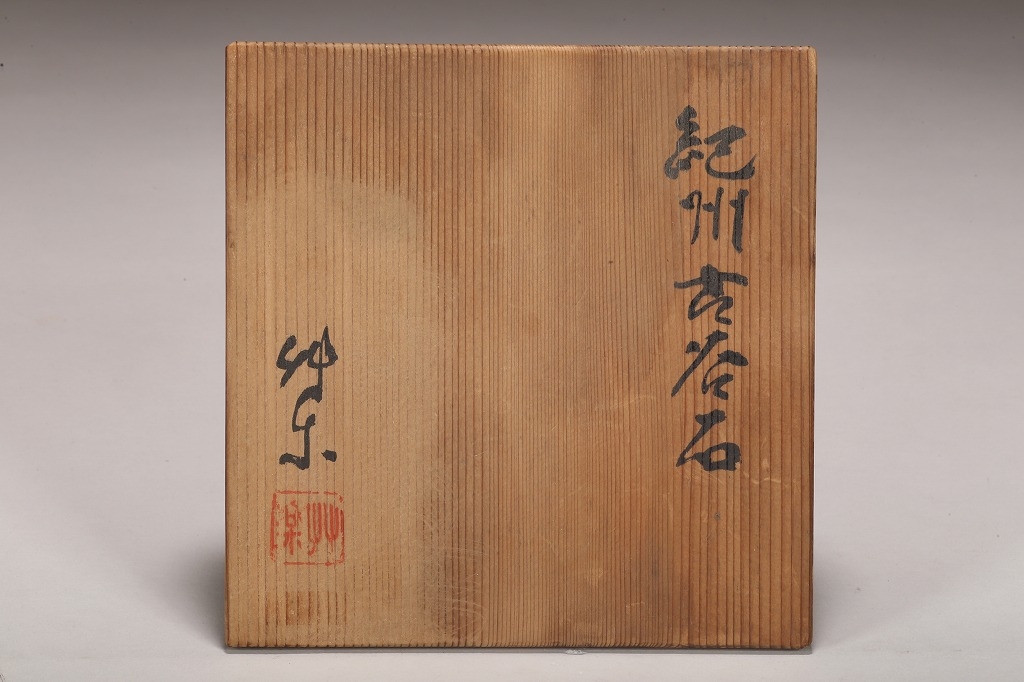 紀州古谷石
艸楽
艸楽